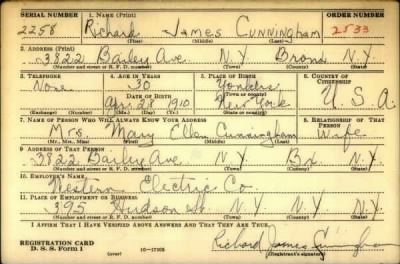 SERIAL NUMBER 1. NAME (Print) ORDER NUMBER
2258 Richard James Cunningham 2533
(First) (Middle) (Last)
2. ADDRESS (Print)
3822 Barley Ave N.Y. Bronx N.Y.
(Number and street or R. F. D. number) (Town) (County) (State)
3. TELEPHONE 4. AGE IN YEARS 5. PLACE OF BIRTH 6. COUNTRY OF CITIZENSHIP
None 30 Yonkers
DATE OF BIRTH (Town or county)
Apr. 28 1910 New York U.S.A.
(Exchange) (Number) (Mo.) (Day) (Yr.) (State or country)
7. NAME OF PERSON WHO WILL ALWAYS KNOW YOUR ADDRESS 8. RELATIONSHIP OF THAT PERSON
Mrs. Mary Ellen Cunningham Wife
(Mr., Mrs., Miss) (First) (Middle) (Last)
9. ADDRESS OF THAT PERSON
3822 Barley Ave N.Y. Bx N.Y.
(Number and street or R. F. D. number) (Town) (County) (State)
10. EMPLOYER'S NAME
Western Electric Co.
11. PLACE OF EMPLOYMENT OR BUSINESS
395 Hudson St. N.Y. N.Y.
(Number and street or R. F. D. number) (Town) (County) (State)
I AFFIRM THAT I HAVE VERIFIED ABOVE ANSWERS AND THAT THEY ARE TRUE.
REGISTRATION CARD
D. S. S. Form 1 (over) Richard James Cunningham
(Registrant's signature)